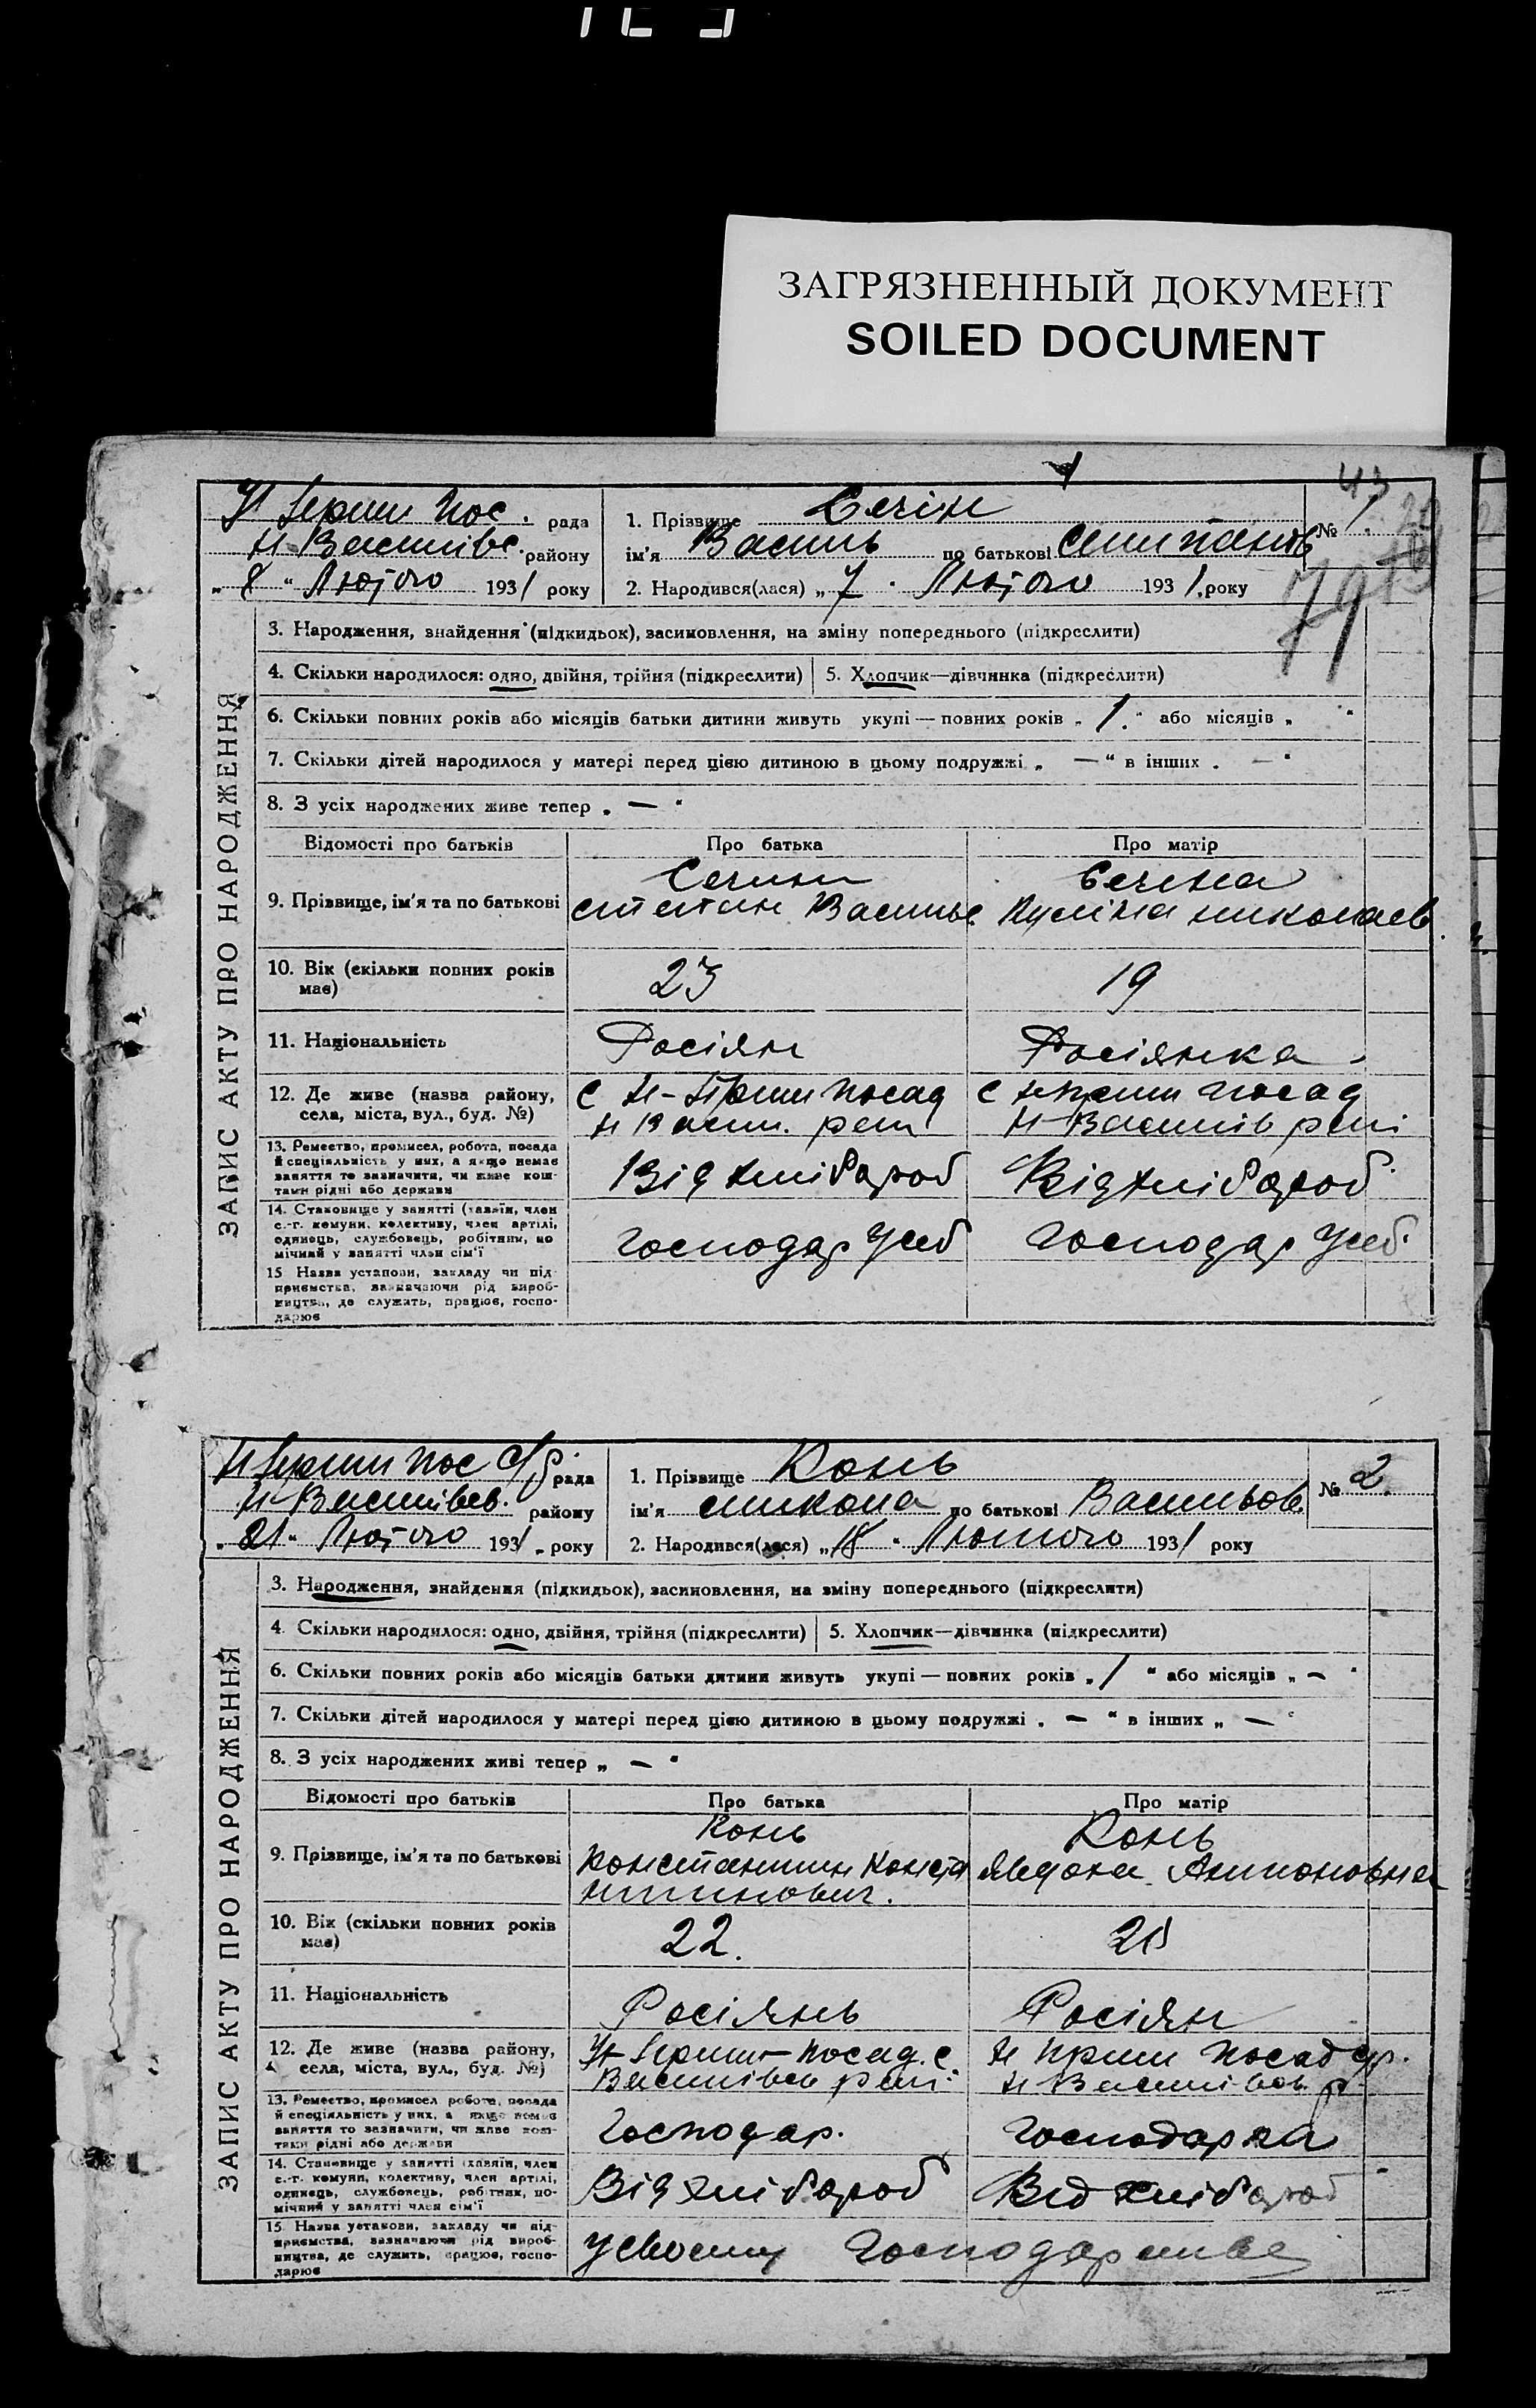 ЗАГРЯЗНЕННЫЙ ДОКУМЕНТ
SOILED DOCUMENT
43
79
пос. рада
Н-Василівс. району
„8“ Лютого 1931 року
1. Прізвище Сечін
ім'я Василь по батькові
№ 1.
2. Народився(лася) „7“ Лютого 1931 року
ЗАПИС АКТУ ПРО НАРОДЖЕННЯ
3. Народження, знайдення (підкидьок), засиновлення, на зміну попереднього (підкреслити)
4. Скільки народилося: одно, двійня, трійня (підкреслити)
5. Хлопчик—дівчинка (підкреслити)
6. Скільки повних років або місяців батьки дитини живуть укупі — повних років „1“ або місяців „ “
7. Скільки дітей народилося у матері перед цією дитиною в цьому подружжі „—“ в інших „—“
8. З усіх народжених живе тепер „—“
Відомості про батьків Про батька Про матір
9. Прізвище, ім'я та по батькові
Сечин
Степан Василье
Сечина
николаев
10. Вік (скільки повних років має) 23 19
11. Національність Росіян Росіянка
12. Де живе (назва району, села, міста, вул., буд. №)
посад
Н Васил.
посад
Н-Василів
13. Ремество, промисел, робота, посада й спеціяльність у них, а якщо немає заняття то зазначити, чи живе коштами рідні або держави
Від хлібороб Від хлібороб
14. Становище у занятті (хазяїн, член с.-г. комуни, колективу, член артілі, одинець, службовець, робітник, помічний у занятті член сім'ї
господар господар
15 Назва установи, закладу чи підприємства, зазначаючи рід виробництва, де служить, працює, господарює
пос с/р рада
Н-Васиlівсв. району
„21“ Лютого 1931 року
1. Прізвище Конь
ім'я микола по батькові Васильов.
№ 2.
2. Народився(лася) „18“ Лютого 1931 року
ЗАПИС АКТУ ПРО НАРОДЖЕННЯ
3. Народження, знайдення (підкидьок), засиновлення, на зміну попереднього (підкреслити)
4. Скільки народилося: одно, двійня, трійня (підкреслити)
5. Хлопчик—дівчинка (підкреслити)
6. Скільки повних років або місяців батьки дитини живуть укупі — повних років „1“ або місяців „—“
7. Скільки дітей народилося у матері перед цією дитиною в цьому подружжі „—“ в інших „—“
8. З усіх народжених живі тепер „—“
Відомості про батьків Про батька Про матір
9. Прізвище, ім'я та по батькові
Конь
Константин Конста
нтинович.
Конь
Явдоха
10. Вік (скільки повних років має) 22.
11. Національність Росіянь Росіян
12. Де живе (назва району, села, міста, вул., буд. №)
посад. с.
Василівсв
посад с/р.
Н Василівсв. р
13. Ремество, промисел робота, посада й спеціяльність у них, а якщо немає заняття то зазначити, чи живе коштами рідні або держави
Господар. Господарка
14. Становище у занятті (хазяїн, член с.-г. комуни, колективу, член артілі, одинець, службовець, робітник, помічний у занятті член сім'ї
Від хлібороб Від хлібороб
15 Назва установи, закладу чи підприємства, зазначаючи рід виробництва, де служить, працює, господарює
усвоему Господарстве